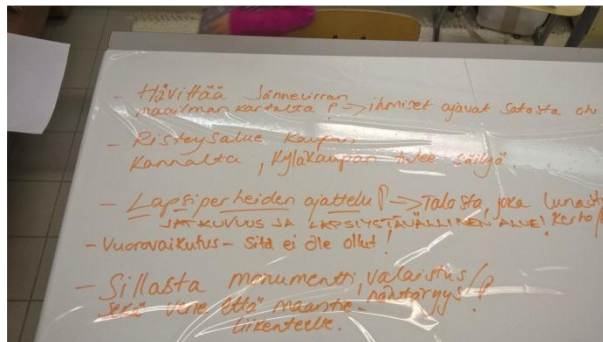 - Hävittää Jännevirran
maailman kartalta ! -> ihmiset ajavat satasta ohi
- Risteysalue kaupan
kannalta, Kyläkaupan tulee säilyä
- Lapsiperheiden ajattelu ! -> Talosta, joka lunast
JATKUVUUS JA LAPSIYSTÄVÄLLINEN ALUE! kerho!
- Vuorovaikutus - Sitä ei ole ollut!
- Sillasta monumentti, valaistus!
sekä vene että maantie- näköäryys!
liikenteelle.